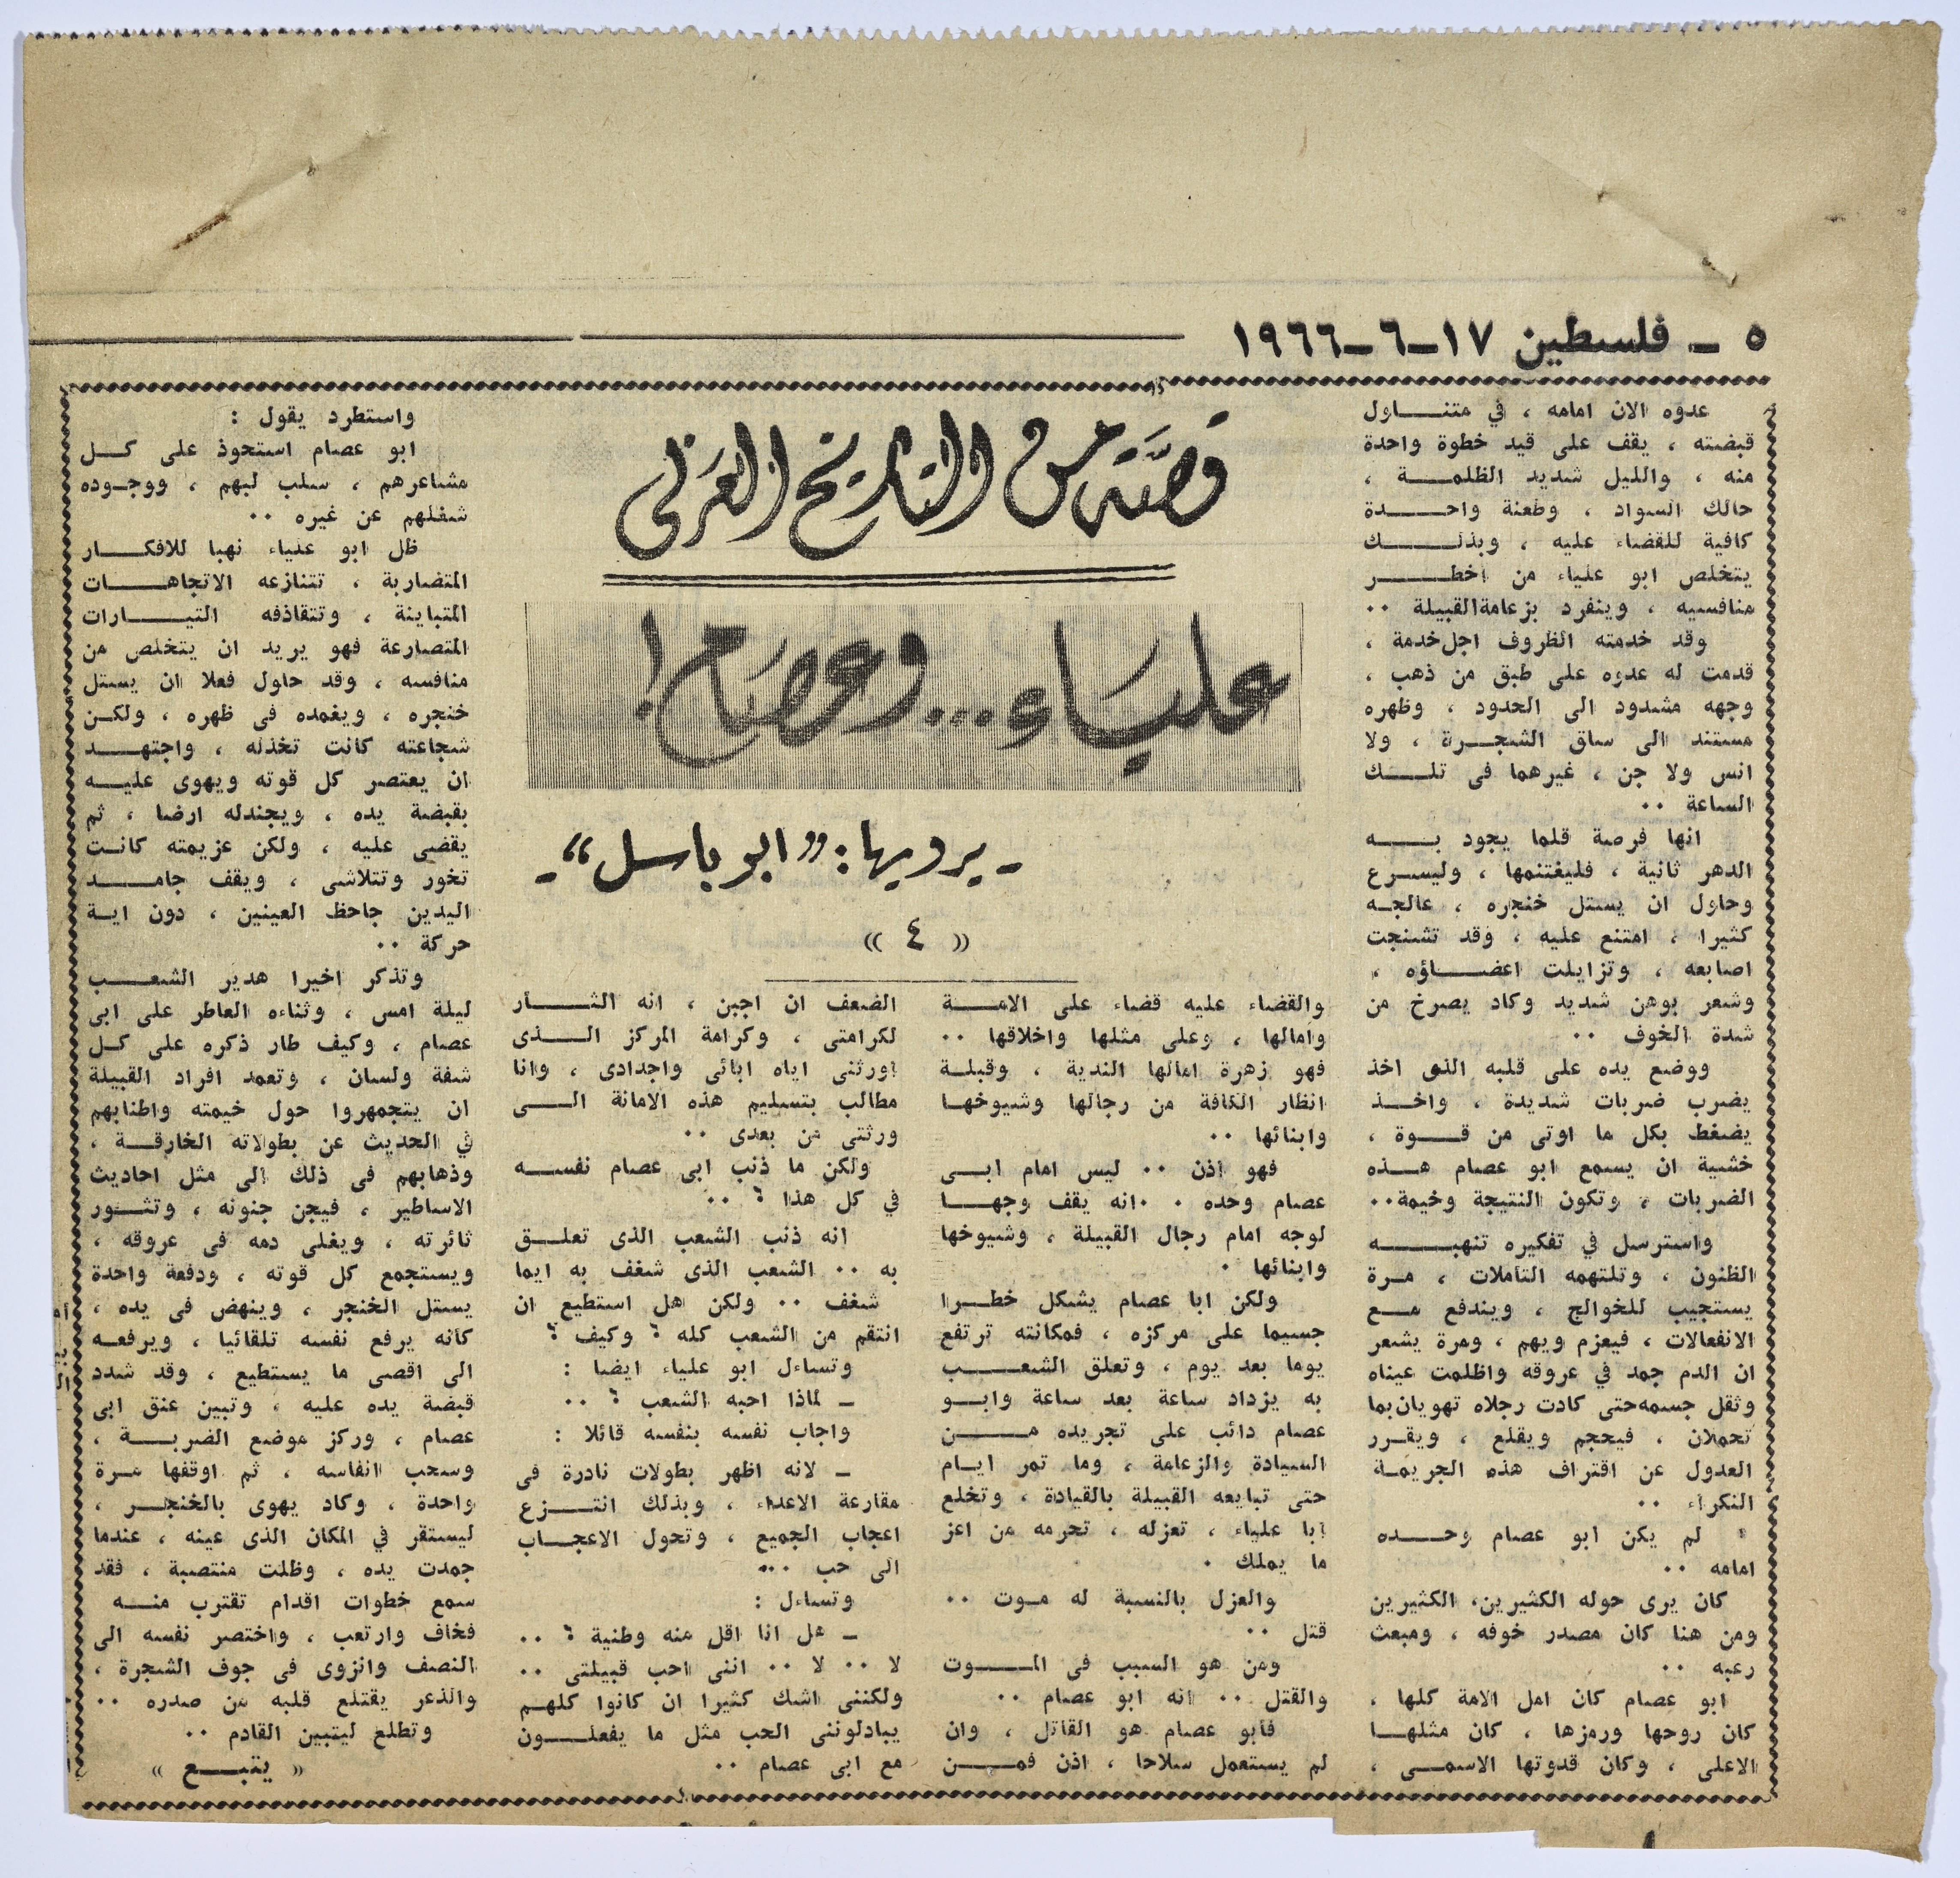 ٥ ـ فلسطين ١٧ـ٦ـ١٩٦٦
قصة من التاريخ العربي
علياء... وعصام!
ـ يرويها: «ابو باسل» ـ
« ٤ »
عدوه الان امامه ، في متنـــاول
قبضته ، يقف على قيد خطوة واحدة
منه ، والليل شديد الظلمـــة ،
حالك السواد ، وطعنة واحـــدة
كافية للقضاء عليه ، وبذلـــك
يتخلص ابو علياء من اخطـــر
منافسيه ، وينفرد بزعامة القبيلة ..
وقد خدمته الظروف اجل خدمة ،
قدمت له عدوه على طبق من ذهب ،
وجهه مشدود الى الحدود ، وظهره
مستند الى ساق الشجـــرة ، ولا
انس ولا جن ، غيرهما فى تلـــك
الساعة ..
انها فرصة قلما يجود بـــه
الدهر ثانية ، فليغتنمها ، وليسرع
وحاول ان يستل خنجره ، عالجـه
كثيرا ، امتنع عليه ، وقد تشنجت
اصابعه ، وتزايلت اعضـــاؤه ،
وشعر بوهن شديد وكاد يصرخ من
شدة الخوف ..
ووضع يده على قلبه الذى اخذ
يضرب ضربات شديدة ، واخـــذ
يضغط بكل ما اوتى من قـــوة ،
خشية ان يسمع ابو عصام هـــذه
الضربات ، وتكون النتيجة وخيمة..
واسترسل في تفكيره تنهبـــه
الظنون ، وتلتهمه التاملات ، مـرة
يستجيب للخوالج ، ويندفع مـــع
الانفعالات ، فيعزم ويهم ، ومرة يشعر
ان الدم جمد في عروقه واظلمت عيناه
وثقل جسمه حتى كادت رجلاه تهويان بما
تحملان ، فيحجم ويقلع ، ويقـرر
العدول عن اقتراف هذه الجريمـة
النكراء ..
لم يكن ابو عصام وحـــده
امامه ..
كان يرى حوله الكثيرين، الكثيرين
ومن هنا كان مصدر خوفه ، ومبعث
رعبه ..
ابو عصام كان امل الامة كلها ،
كان روحها ورمزها ، كان مثلهـــا
الاعلى ، وكان قدوتها الاسمـــى ،
والقضاء عليه قضاء على الامـــة
وامالها ، وعلى مثلها واخلاقها ..
فهو زهرة امالها الندية ، وقبلـــة
انظار الكافة من رجالها وشيوخهـا
وابنائها ..
فهو اذن .. ليس امام ابـــى
عصام وحده . . انه يقف وجهـــا
لوجه امام رجال القبيلة ، وشيوخها
وابنائها .
ولكن ابا عصام يشكل خطـــرا
جسيما على مركزه ، فمكانته ترتفع
يوما بعد يوم ، وتعلق الشعـــب
به يزداد ساعة بعد ساعة وابـــو
عصام دائب على تجريده مـــن
السيادة والزعامة ، وما تمر ايـام
حتى تبايعه القبيلة بالقيادة ، وتخلع
ابا علياء ، تعزله ، تحرمه من اعز
ما يملك .
والعزل بالنسبة له مـوت ..
قتل ..
ومن هو السبب فى المـــوت
والقتل .. انه ابو عصام ..
فابو عصام هو القاتل ، وان
لم يستعمل سلاحا ، اذن فمـــن
الضعف ان اجبن ، انه الثـــأر
لكرامتى ، وكرامة المركز الـــذى
اورثنى اياه ابائى واجدادى ، وانا
مطالب بتسليم هذه الامانة الـــى
ورثتى من بعدى ..
ولكن ما ذنب ابى عصام نفســـه
في كل هذا ؟ ..
انه ذنب الشعب الذى تعلـــق
به .. الشعب الذى شغف به ايما
شغف .. ولكن هل استطيع ان
انتقم من الشعب كله ؟ وكيف ؟
وتساءل ابو علياء ايضا :
ـ لماذا احبه الشعب ؟ ..
واجاب نفسه بنفسه قائلا :
ـ لانه اظهر بطولات نادرة فى
مقارعة الاعداء ، وبذلك انتـــزع
اعجاب الجميع ، وتحول الاعجـاب
الى حب ...
وتساءل :
ـ هل انا اقل منه وطنية ؟ ..
لا .. لا .. اننى احب قبيلتى ..
ولكننى اشك كثيرا ان كانوا كلهـم
يبادلوننى الحب مثل ما يفعلـــون
مع ابى عصام ..
واستطرد يقول :
ابو عصام استحوذ على كـــل
مشاعرهم ، سلب لبهم ، ووجـوده
شغلهم عن غيره ..
ظل ابو علياء نهبا للافكـــار
المتضاربة ، تتنازعه الاتجاهـــات
المتباينة ، وتتقاذفه التيـــارات
المتصارعة فهو يريد ان يتخلص من
منافسه ، وقد حاول فعلا ان يستل
خنجره ، ويغمده فى ظهره ، ولكـن
شجاعته كانت تخذله ، واجتهـــد
ان يعتصر كل قوته ويهوى عليـــه
بقبضة يده ، ويجندله ارضا ، ثم
يقضى عليه ، ولكن عزيمته كانـت
تخور وتتلاشى ، ويقف جامـــد
اليدين جاحظ العينين ، دون ايـة
حركة ..
وتذكر اخيرا هدير الشعـــب
ليلة امس ، وثناءه العاطر على ابى
عصام ، وكيف طار ذكره على كـل
شفة ولسان ، وتعمد افراد القبيلة
ان يتجمهروا حول خيمته واطنابهم
في الحديث عن بطولاته الخارقـة ،
وذهابهم فى ذلك الى مثل احاديث
الاساطير ، فيجن جنونه ، وتثـور
ثائرته ، ويغلى دمه فى عروقه ،
ويستجمع كل قوته ، ودفعة واحدة
يستل الخنجر ، وينهض فى يده ،
كانه يرفع نفسه تلقائيا ، ويرفعـه
الى اقصى ما يستطيع ، وقد شدد
قبضة يده عليه ، وتبين عنق ابى
عصام ، وركز موضع الضربـــة ،
وسحب انفاسه ، ثم اوقفها مـرة
واحدة ، وكاد يهوى بالخنجـــر ،
ليستقر في المكان الذى عينه ، عندما
جمدت يده ، وظلت منتصبة ، فقد
سمع خطوات اقدام تقترب منـــه
فخاف وارتعب ، واختصر نفسه الى
النصف وانزوى فى جوف الشجرة ،
والذعر يقتلع قلبه من صدره ..
وتطلع ليتبين القادم ..
« يتبـــع »